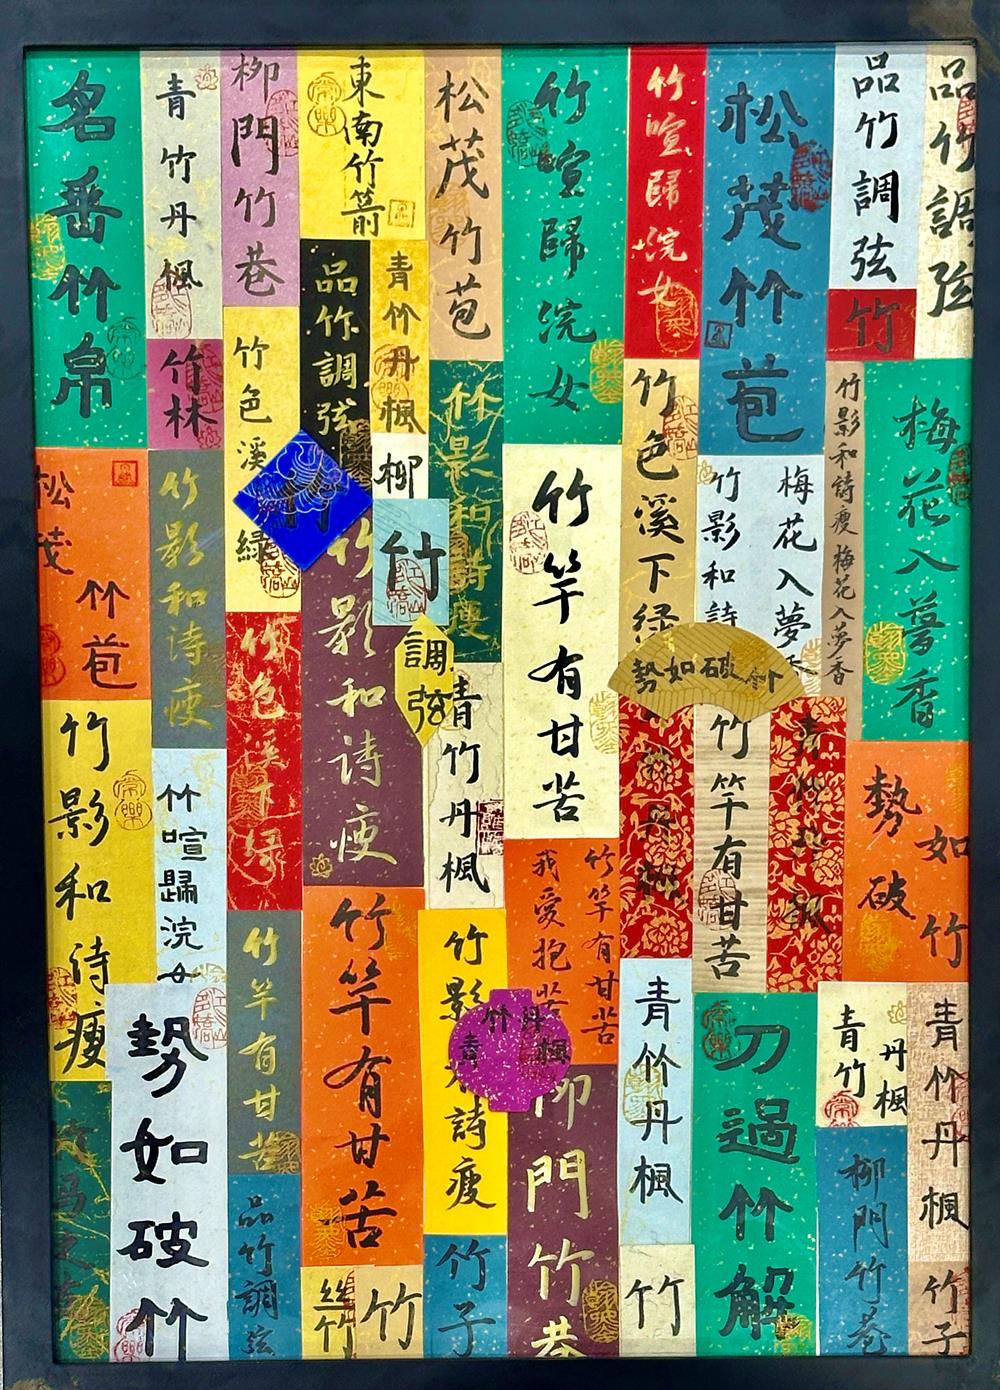 名垂竹帛
青竹丹楓
柳門竹巷
東南竹箭
松茂竹苞
竹喧歸浣女
竹喧歸浣女
松茂竹苞
品竹調弦
品竹調弦
竹
竹林
竹色溪
綠
品竹調弦
青竹丹楓
柳
竹
竹影和詩瘦
竹色溪下綠
竹影和詩
梅花入夢
竹影和詩瘦梅花入夢香
梅花入夢香
松茂
竹苞
竹影和诗瘦
竹影和诗瘦
調弦
竹竿有甘苦
勢如破竹
竹色溪下绿
青竹丹楓
竹竿有甘苦
青竹丹楓
勢破
如竹
竹影和诗瘦
竹喧歸浣女
竹竿有甘苦
竹竿有甘苦
竹影和詩瘦
竹竿有甘苦
我愛抱苦
竹丹
青楓
柳門竹巷
青竹丹楓
刀過竹解
青竹
丹楓
青竹丹楓
勢如破竹
品竹調弦
竹
竹子
竹
柳門竹巷
竹子